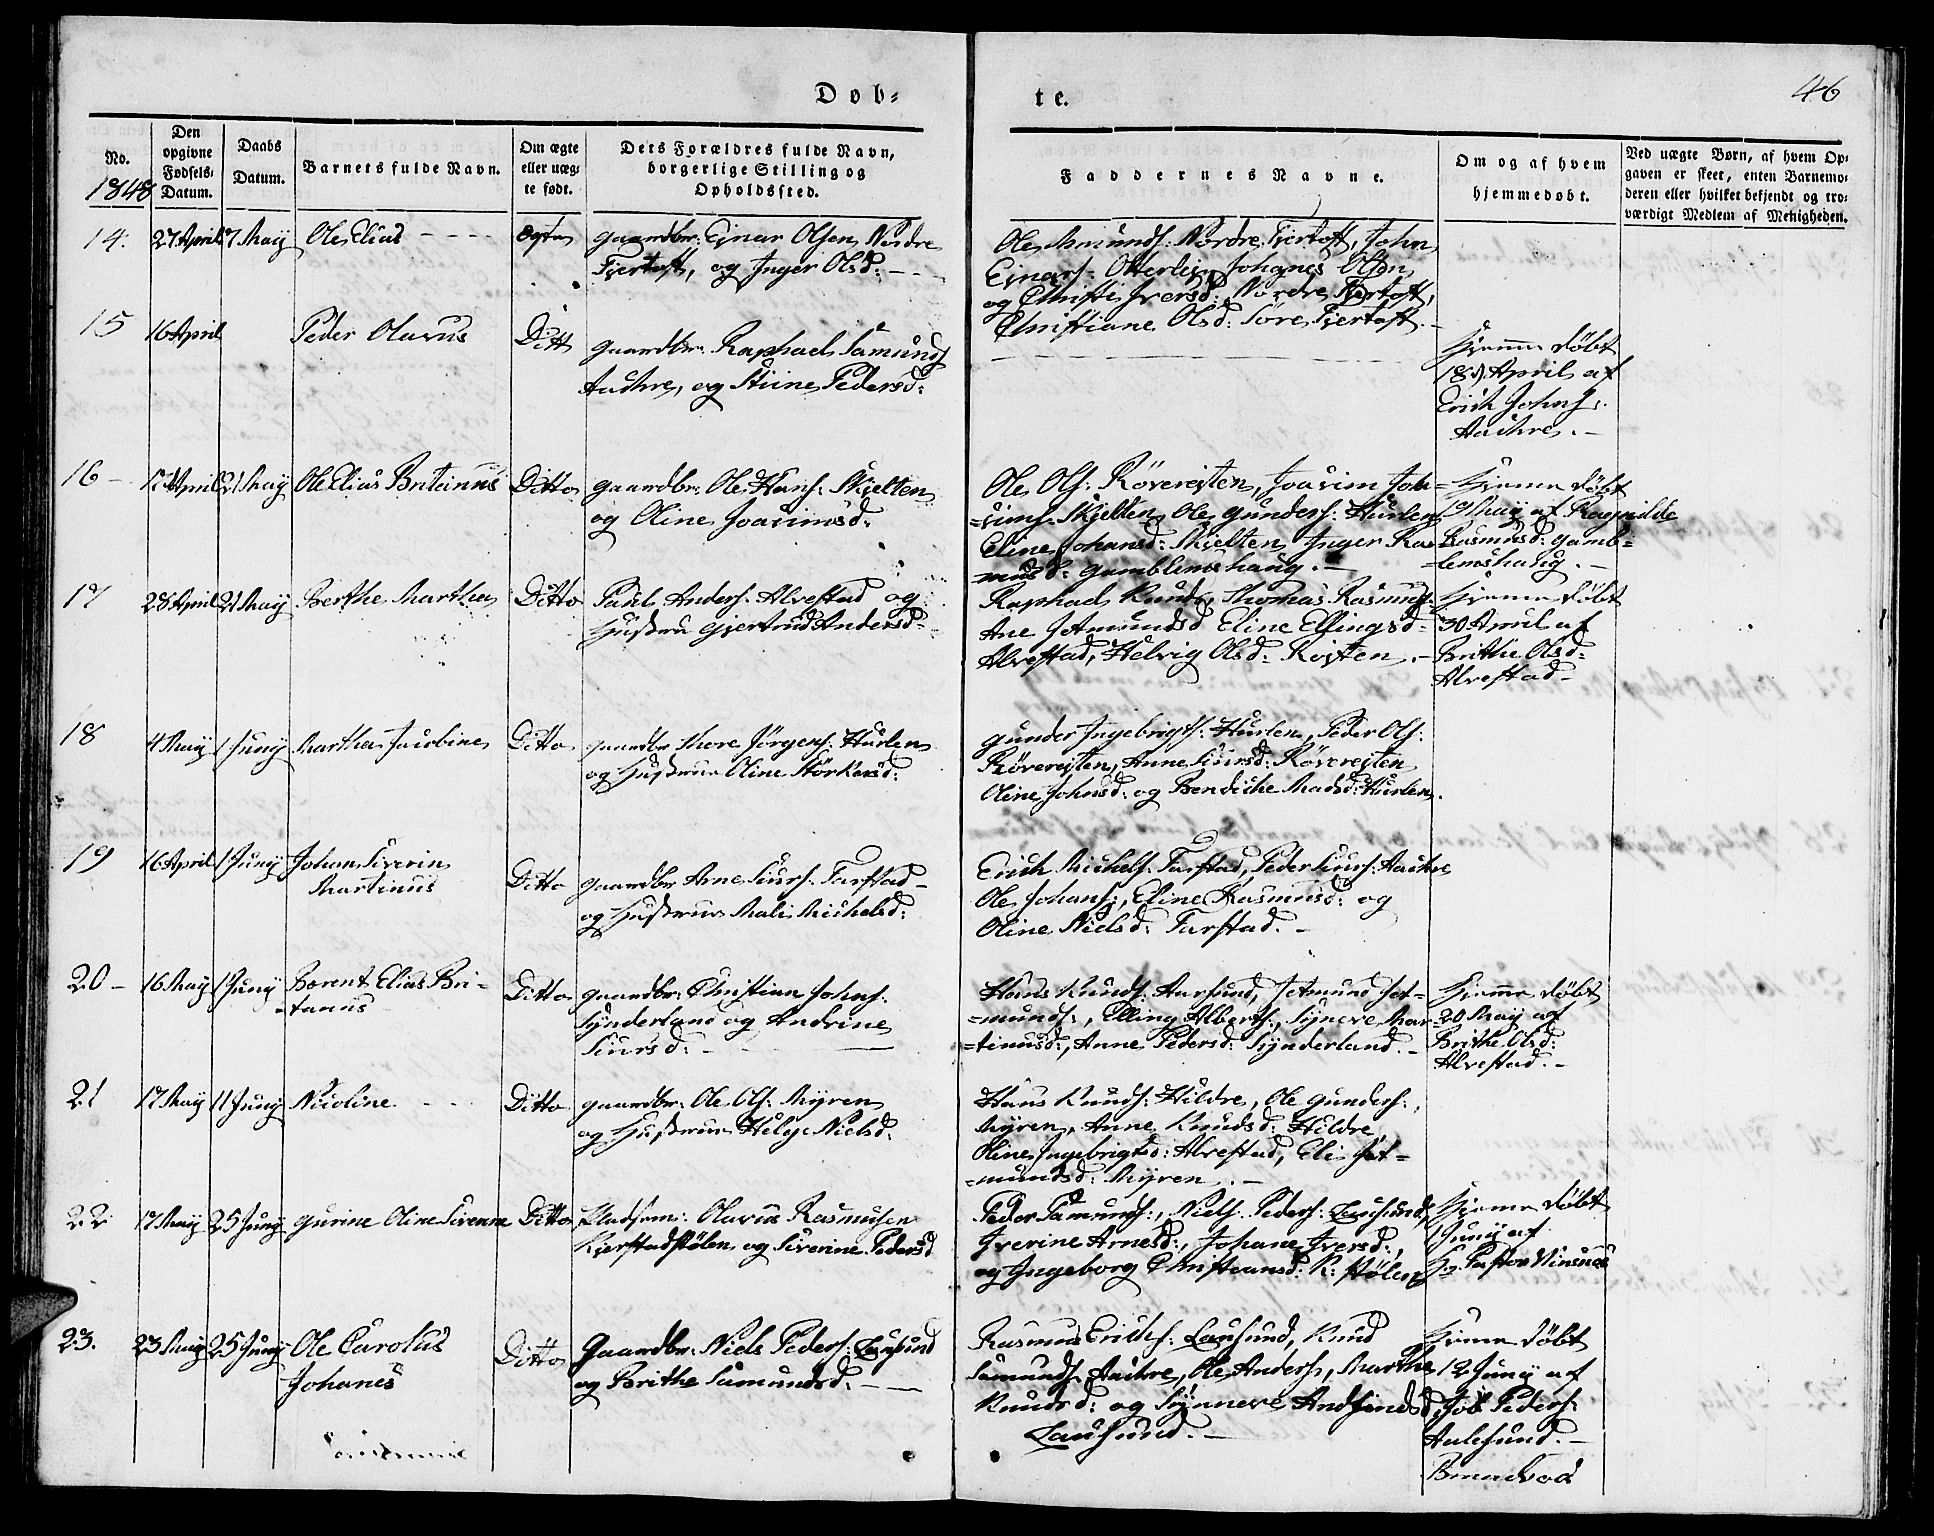 Døb-
te.
46
No.
1848
Den
opgivne
Fødsels-
Datum.
Daabs
Datum.
Barnets fulde Navn.
Om ægte
eller uæg-
te født.
Dets Forældres fulde Navn,
borgerlige Stilling og
Opholdssted.
Faddernes Navne.
Om og af hvem
hjemmedøbt.
Ved uægte Børn, af hvem Op-
gaven er skeet, enten Barnemo-
deren eller hvilket bekjendt og tro-
værdigt Medlem af Menigheden.
14. 27 April 7 May Ole Elias ægte
Gaardbr: Ejnar Olsen Nordre
Fjertoft, og Inger Olsd:
Ole Amunds: Nordre Fjertoft, John
Ejnars: Otterlei, Johanes Olsen
og Christi Iversd: Nordre Fjertoft,
Christiane Olsd: Søre Fjertoft.
15 16 April Peder Olavus Ditto
Gaardbr. Raphael Samunds
Auchre, og Stiine Pedersd:
Hjemme døbt
18de April af
Erich Johns:
Auchre.
16 17 April 21 May Ole Elias Britanus Ditto
Gaardbr: Ole Hans: Skjelten
og Oline Joacimsd:
Ole Ols: Røvereiten, Joacim Joa-
cims: Skjelten, Ole Gunders: Hurlen
Eline Johansd: Skjelten Inger Ras-
musd: Gamblemshaug.
Hjemme døbt
19 May af Ragnilde
Rasmusd: Gamb-
lemshaug.
17 28 April 21 May Berthe Marthea Ditto
Paul Anders: Alvestad og
Hustru Gjertrud Andersd:
Raphael Knuds, Thomas Rasmus:
Ane Jetmundsd Eline Ellingsd:
Alvestad, Helvig Olsd: Røsten.
Hjemme døbt
30 April af
Brithe Olsd:
Alvestad
18 4 May 1 Juny Marthea Jacobine Ditto
Gaardbr Thore Jørgens: Hurlen
og Hustrue Oline Størkersd:
Gunder Ingebrigts: Hurlen, Peder Ols:
Røvereiten, Anne Siursd: Røvereiten
Oline Johnsd: og Bendicke Madsd: Hurlen.
19 16 April 1 Juny Johan Siverin
Martinus Ditto
Gaardbr Arne Siurs: Farstad
og Hustrue Mali Michelsd:
Erich Michels: Farstad, Peder Siurs: Auchre
Ole Johans:, Eline Rasmusd: og
Oline Nielsd: Farstad.
20 16 May 1 Juny Berent Elias Bri-
tanus Ditto
Gaardbr: Christian Johns:
Synderland og Andrine
Siursd:
Hans Knuds: Aursund, Jetmund Jet-
munds:, Elling Alberts:, Syneve Mar-
tinusd:, Anne Pedersd: Synderland.
Hjemme døbt
20 May af
Brithe Olsd:
Alvestad.
21 17 May 11 Juny Nicoline Ditto
Gaardbr: Ole Ols: Myren
og Hustrue Helge Nielsd:
Hans Knuds: Hildre, Ole Gunders:,
Myren, Anne Knudsd: Hildre
Oline Ingebrigtsd: Alvestad, Eli Jet-
mundsd: Myren.
22 17 May 25 Juny Gurine Oline Sivrine Ditto
Pladsm: Olavus Rasmusen
Kjerstadstølen og Siverine Pedersd
Peder Samunds:, Niels Peders: Lausund,
Iverine Arnesd:, Johane Iversd:,
og Ingeborg Christiansd: K: stølen
Hjemme døbt
Juny af
Hr. Pastor Winsnes
23. 23 May 25 Juny Ole Carolus
Johanes Ditto
Gaardbr: Niels Peders: Lausund
og Brithe Samundsd:
Rasmus Erichs: Lausund, Knud
Samunds: Auchre, Ole Anders:, Marthe
Knudsd: og Synneve Andsinesd
Lausund.
Hjemme døbt
12 Juny af
Job Peders:
Aalesund.